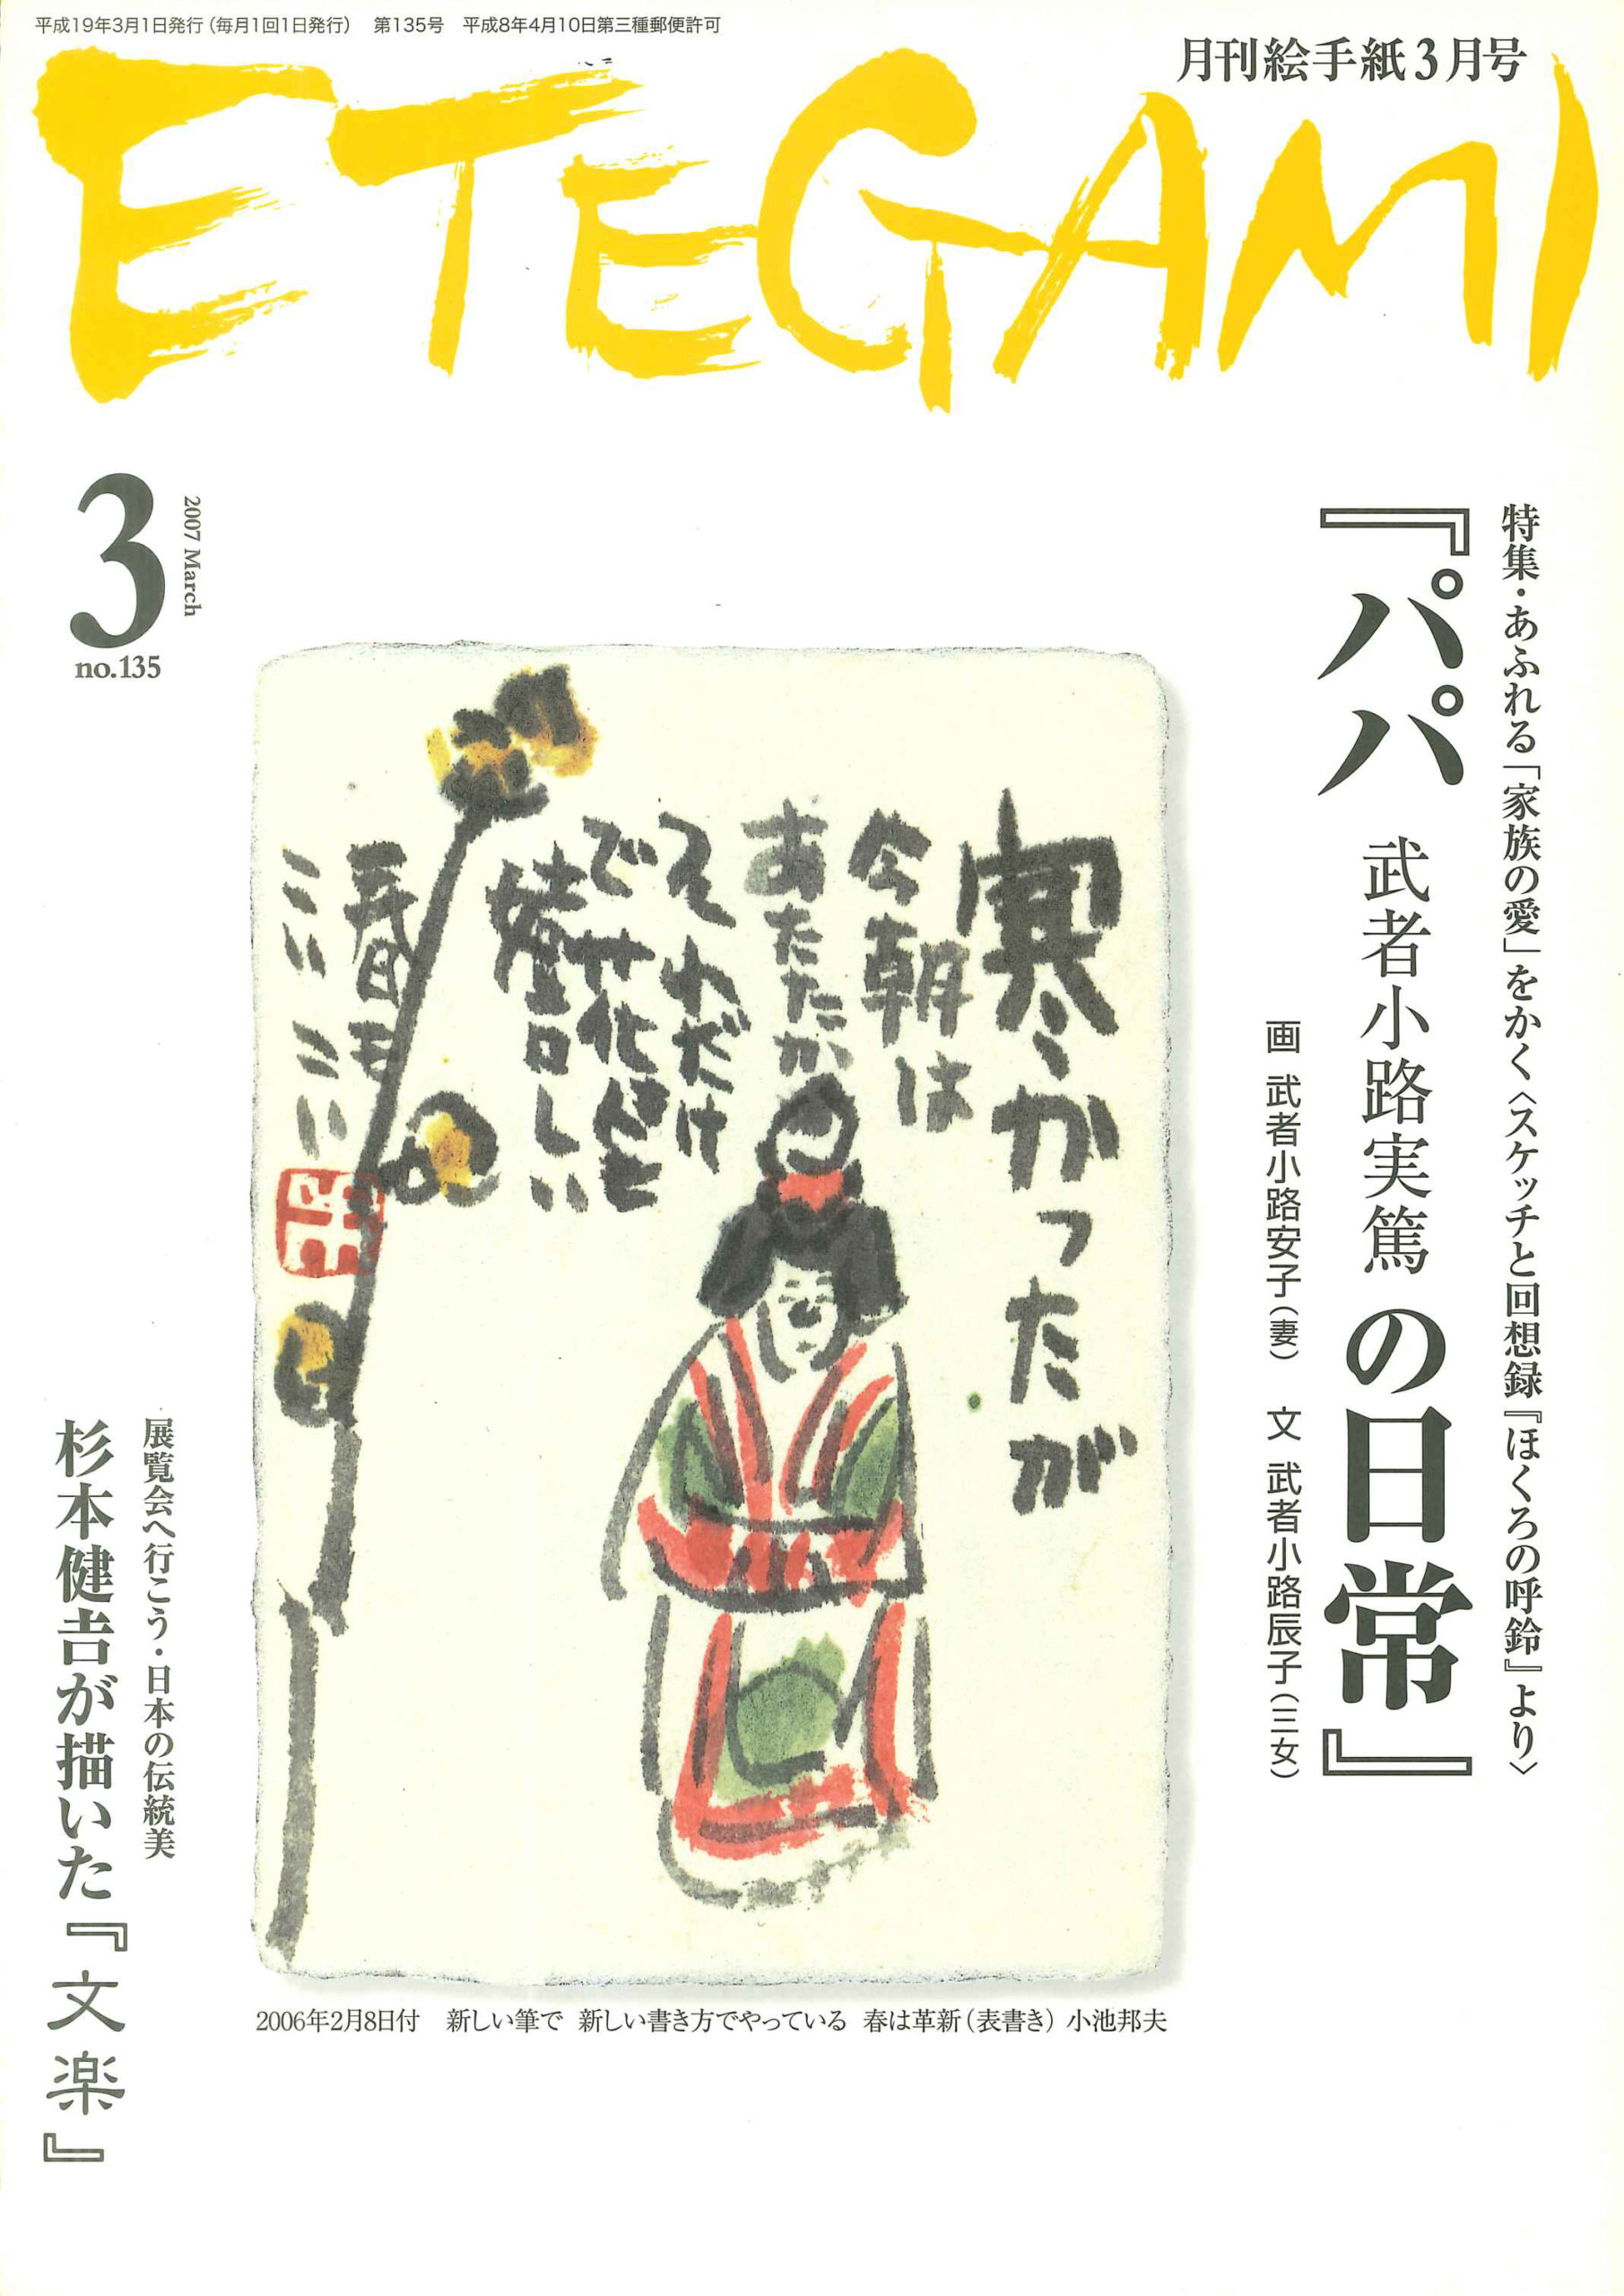 平成19年3月1日発行(毎月1回1日発行) 第135号 平成8年4月10日第三種郵便許可
月刊絵手紙3月号
ETEGAMI
3
2007 March
no.135
特集・あふれる「家族の愛」をかく〈スケッチと回想録『ほくろの呼鈴』より〉
『パパ 武者小路実篤 の日常』
画 武者小路安子(妻) 文 武者小路辰子(三女)
寒かったが
今朝は
あたたか
それだけ
で花壇も
嬉しい
春
こい こい
展覧会へ行こう・日本の伝統美
杉本健吉が描いた『文楽』
2006年2月8日付 新しい筆で 新しい書き方でやっている 春は革新(表書き) 小池邦夫